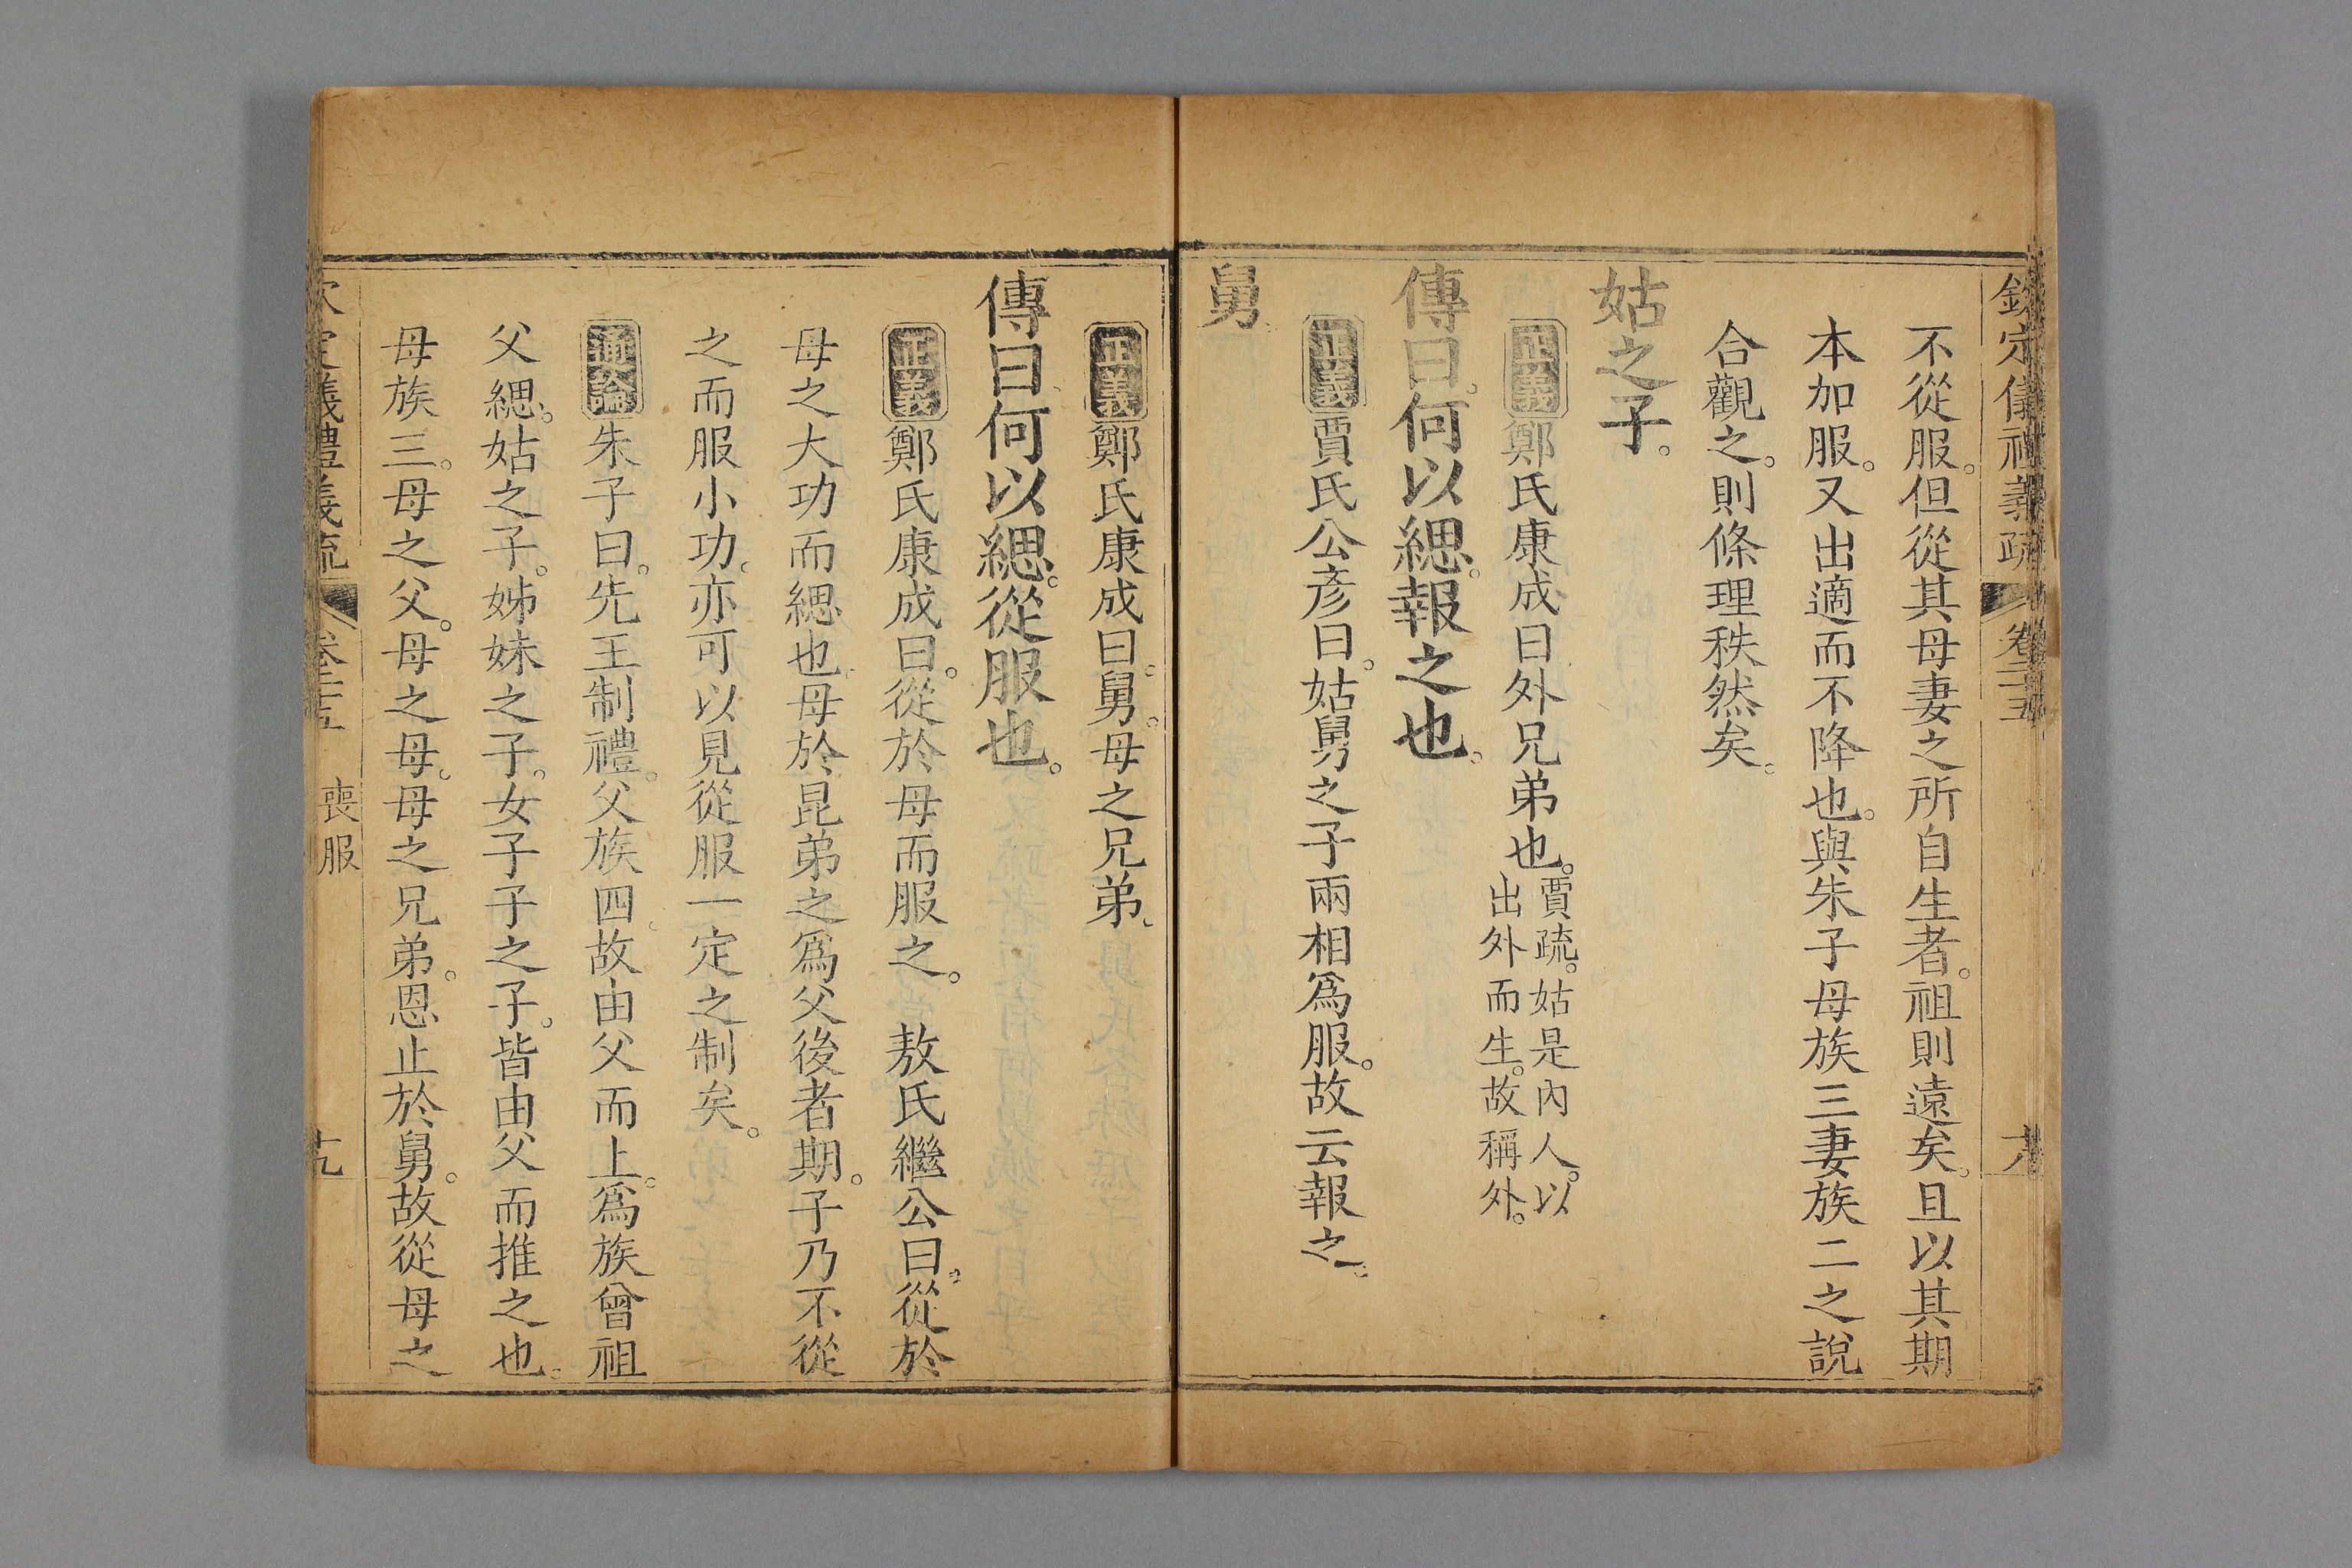 欽定儀禮義疏 卷二十五
不從服。但從其母妻之所自生者。祖則遠矣。且以其期
本加服。又出適而不降也。與朱子母族三妻族二之說
合觀之。則條理秩然矣。
姑之子。
正義 鄭氏康成曰外兄弟也。賈疏。姑是內人。以
出外而生。故稱外。
傳曰。何以緦。報之也。
正義 賈氏公彥曰。姑舅之子兩相爲服。故云報之。
舅。
正義 鄭氏康成曰。舅。母之兄弟。
傳曰。何以緦。從服也。
正義 鄭氏康成曰。從於母而服之。 敖氏繼公曰。從於
母之大功而緦也。母於昆弟之爲父後者期。子乃不從
之而服小功。亦可以見從服一定之制矣。
通論 朱子曰。先王制禮。父族四。故由父而上。爲族曾祖
父緦。姑之子。姊妹之子。女子子之子。皆由父而推之也。
母族三。母之父。母之母。母之兄弟。恩止於舅。故從母之
欽定儀禮義疏 卷二十五 喪服 十九